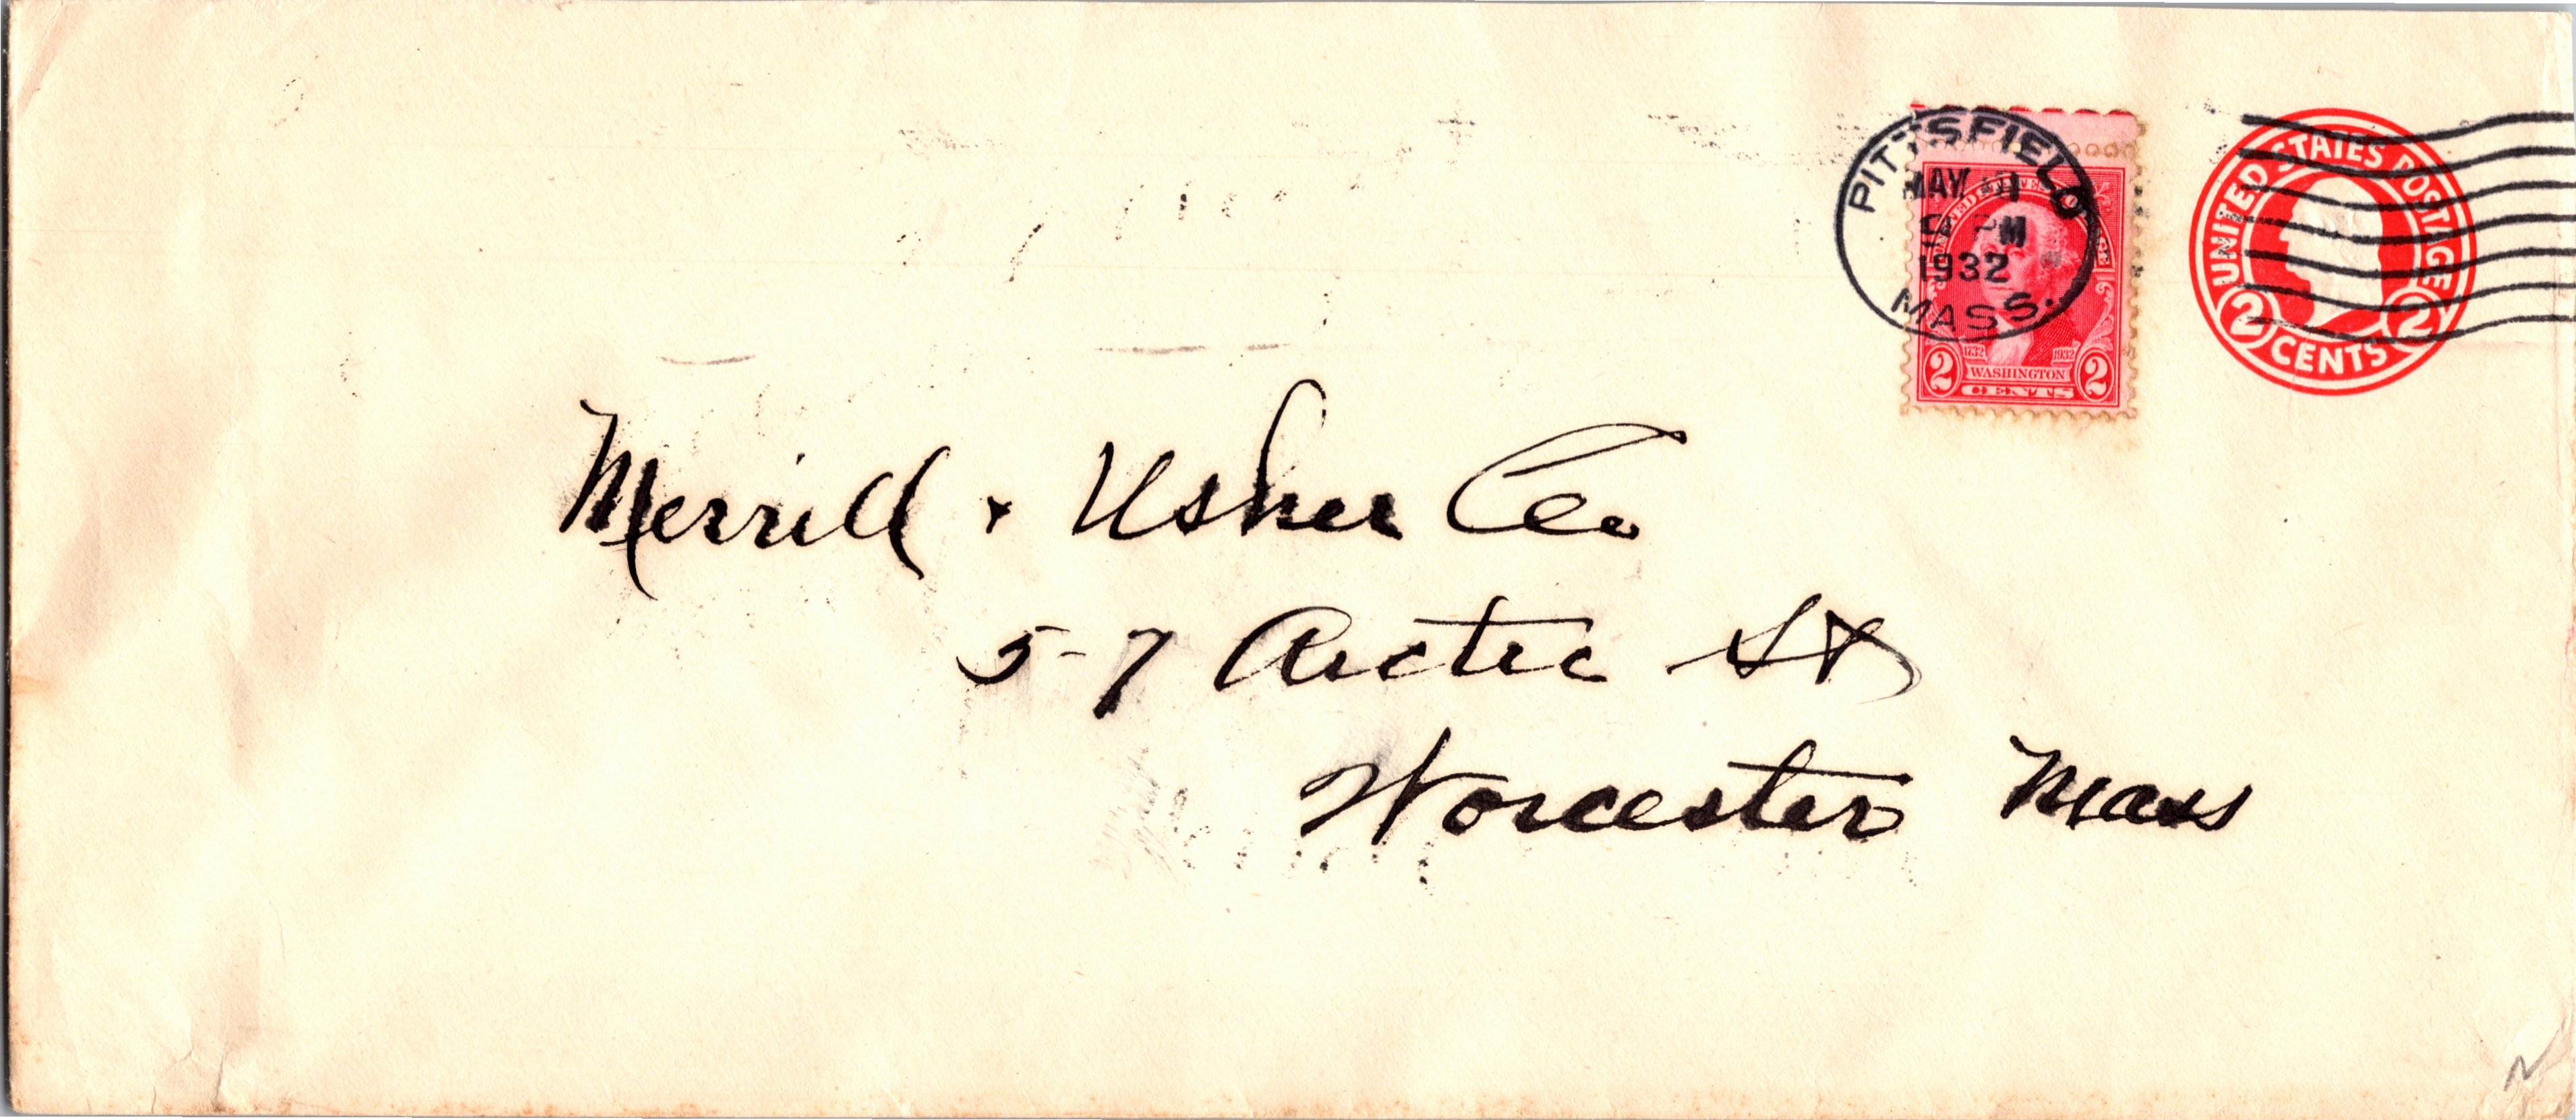 PITTSFIELD
MAY 11
PM
1932
MASS.
1732 1932
2 WASHINGTON 2
CENTS
UNITED STATES POSTAGE
2 2
CENTS
Merrill + Usher Co.
5-7 Arctic St
Worcester Mass
N